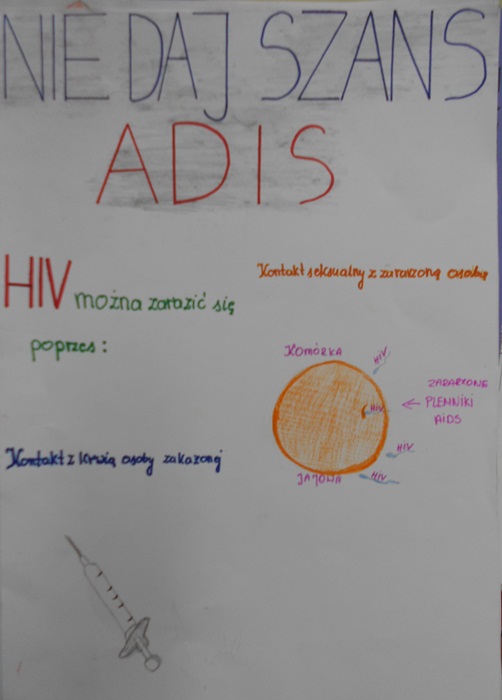 NIE DAJ SZANS
ADIS
HIV można zarazić się
poprzes:
Kontakt seksualny z zarazoną osobą
KOMÓRKA
HIV
HIV
ZARARZONE
PLEMNIKI
AIDS
HIV
JAJOWA
HIV
Kontakt z krwią osoby zakażonej